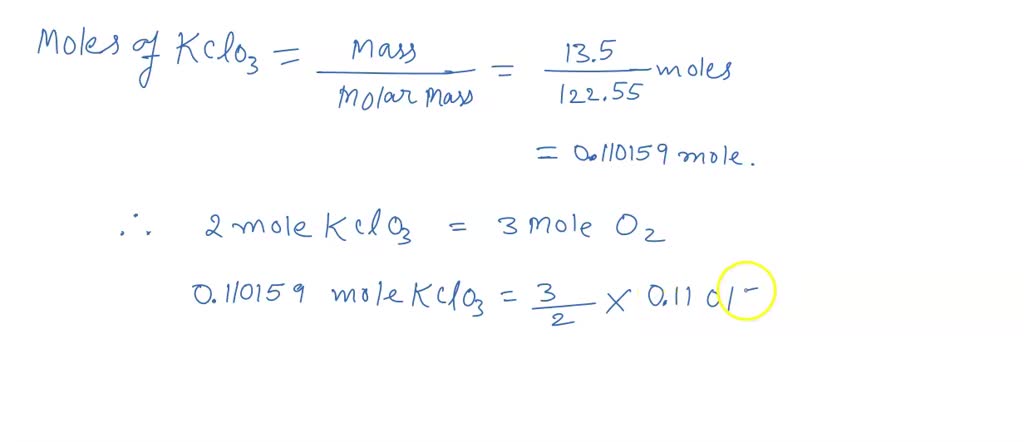 Moles of KClO3 = Mass / Molar Mass = 13.5 / 122.55 moles
= 0.110159 mole.
∴ 2 mole KClO3 = 3 Mole O2
0.110159 mole KClO3 = 3 / 2 × 0.1101